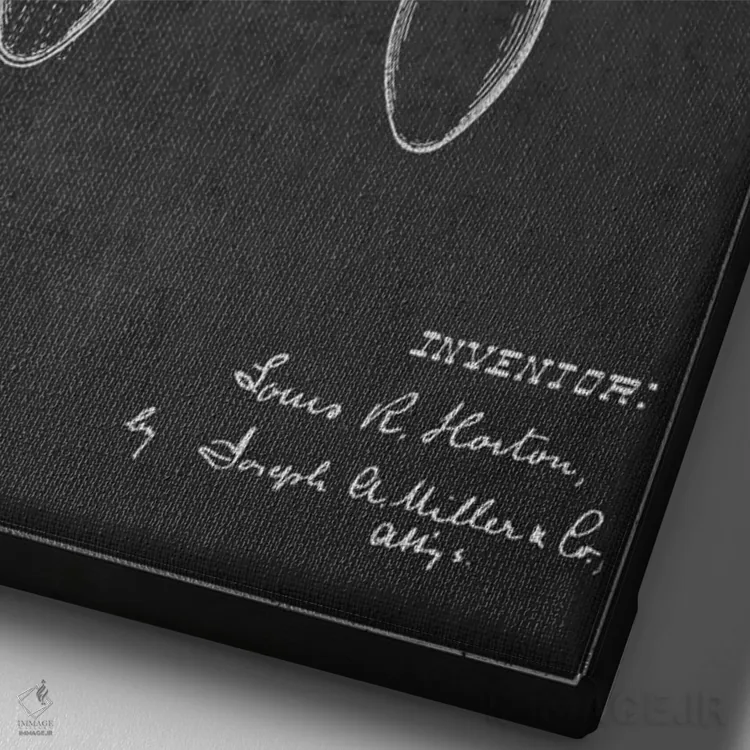 INVENTOR:
Louis R. Horton,
by Joseph A. Miller & Co.,
Att'ys.
IMMAGE
IMMAGE.IR
IMMAGE.IR